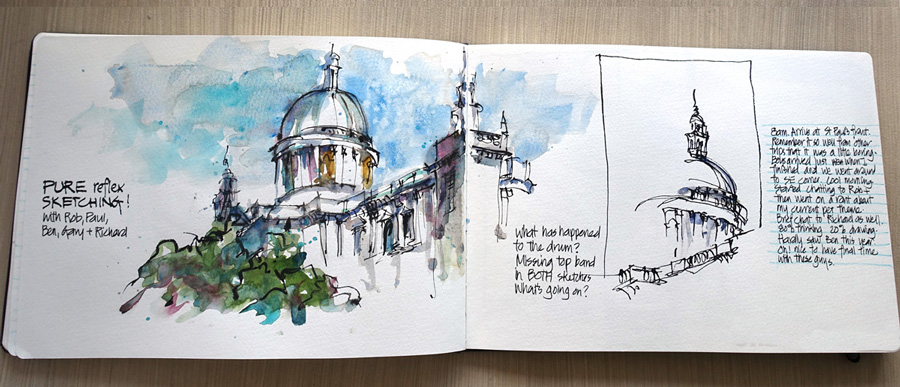 PURE reflex
SKETCHING!
with Rob, Paul,
Ben, Gary + Richard
What has happened
to the drum?
Missing top band
in BOTH sketches
What's going on?
8am. Arrive at St Paul's front.
Remember it so well from other
trips that it was a little boring.
Rob arrived just when I
finished and we went around
to SE corner. Cool morning
Started chatting to Rob +
then went on a rant about
my current pet theme
Brief chat to Richard as well.
80% thinking 20% drawing.
Hardly saw Ben this year
Oh! nice to have final time
with these guys.